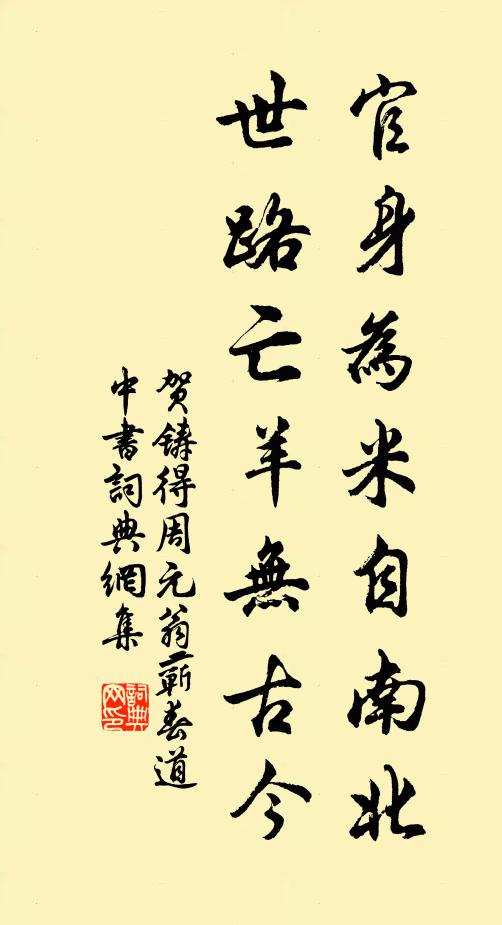 官身為米自南北
世路亡羊無古今
賀鑄得周元翁蘄春道
中書詞典網集
詞典網印